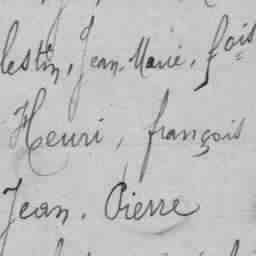 lestin, Jean-Marie, fois
Henri, françois
Jean. Pierre